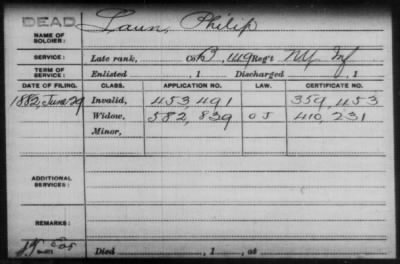 DEAD
Laun, Philip
NAME OF SOLDIER:
SERVICE: Late rank, Co. B, 149 Reg't NY Inf
TERM OF SERVICE: Enlisted , 1 Discharged , 1
DATE OF FILING. CLASS. APPLICATION NO. LAW. CERTIFICATE NO.
1882, June 29 Invalid, 453,491 359,453
Widow, 582,839 O J 410,231
Minor,
ADDITIONAL SERVICES:
REMARKS:
Died , 1 , at